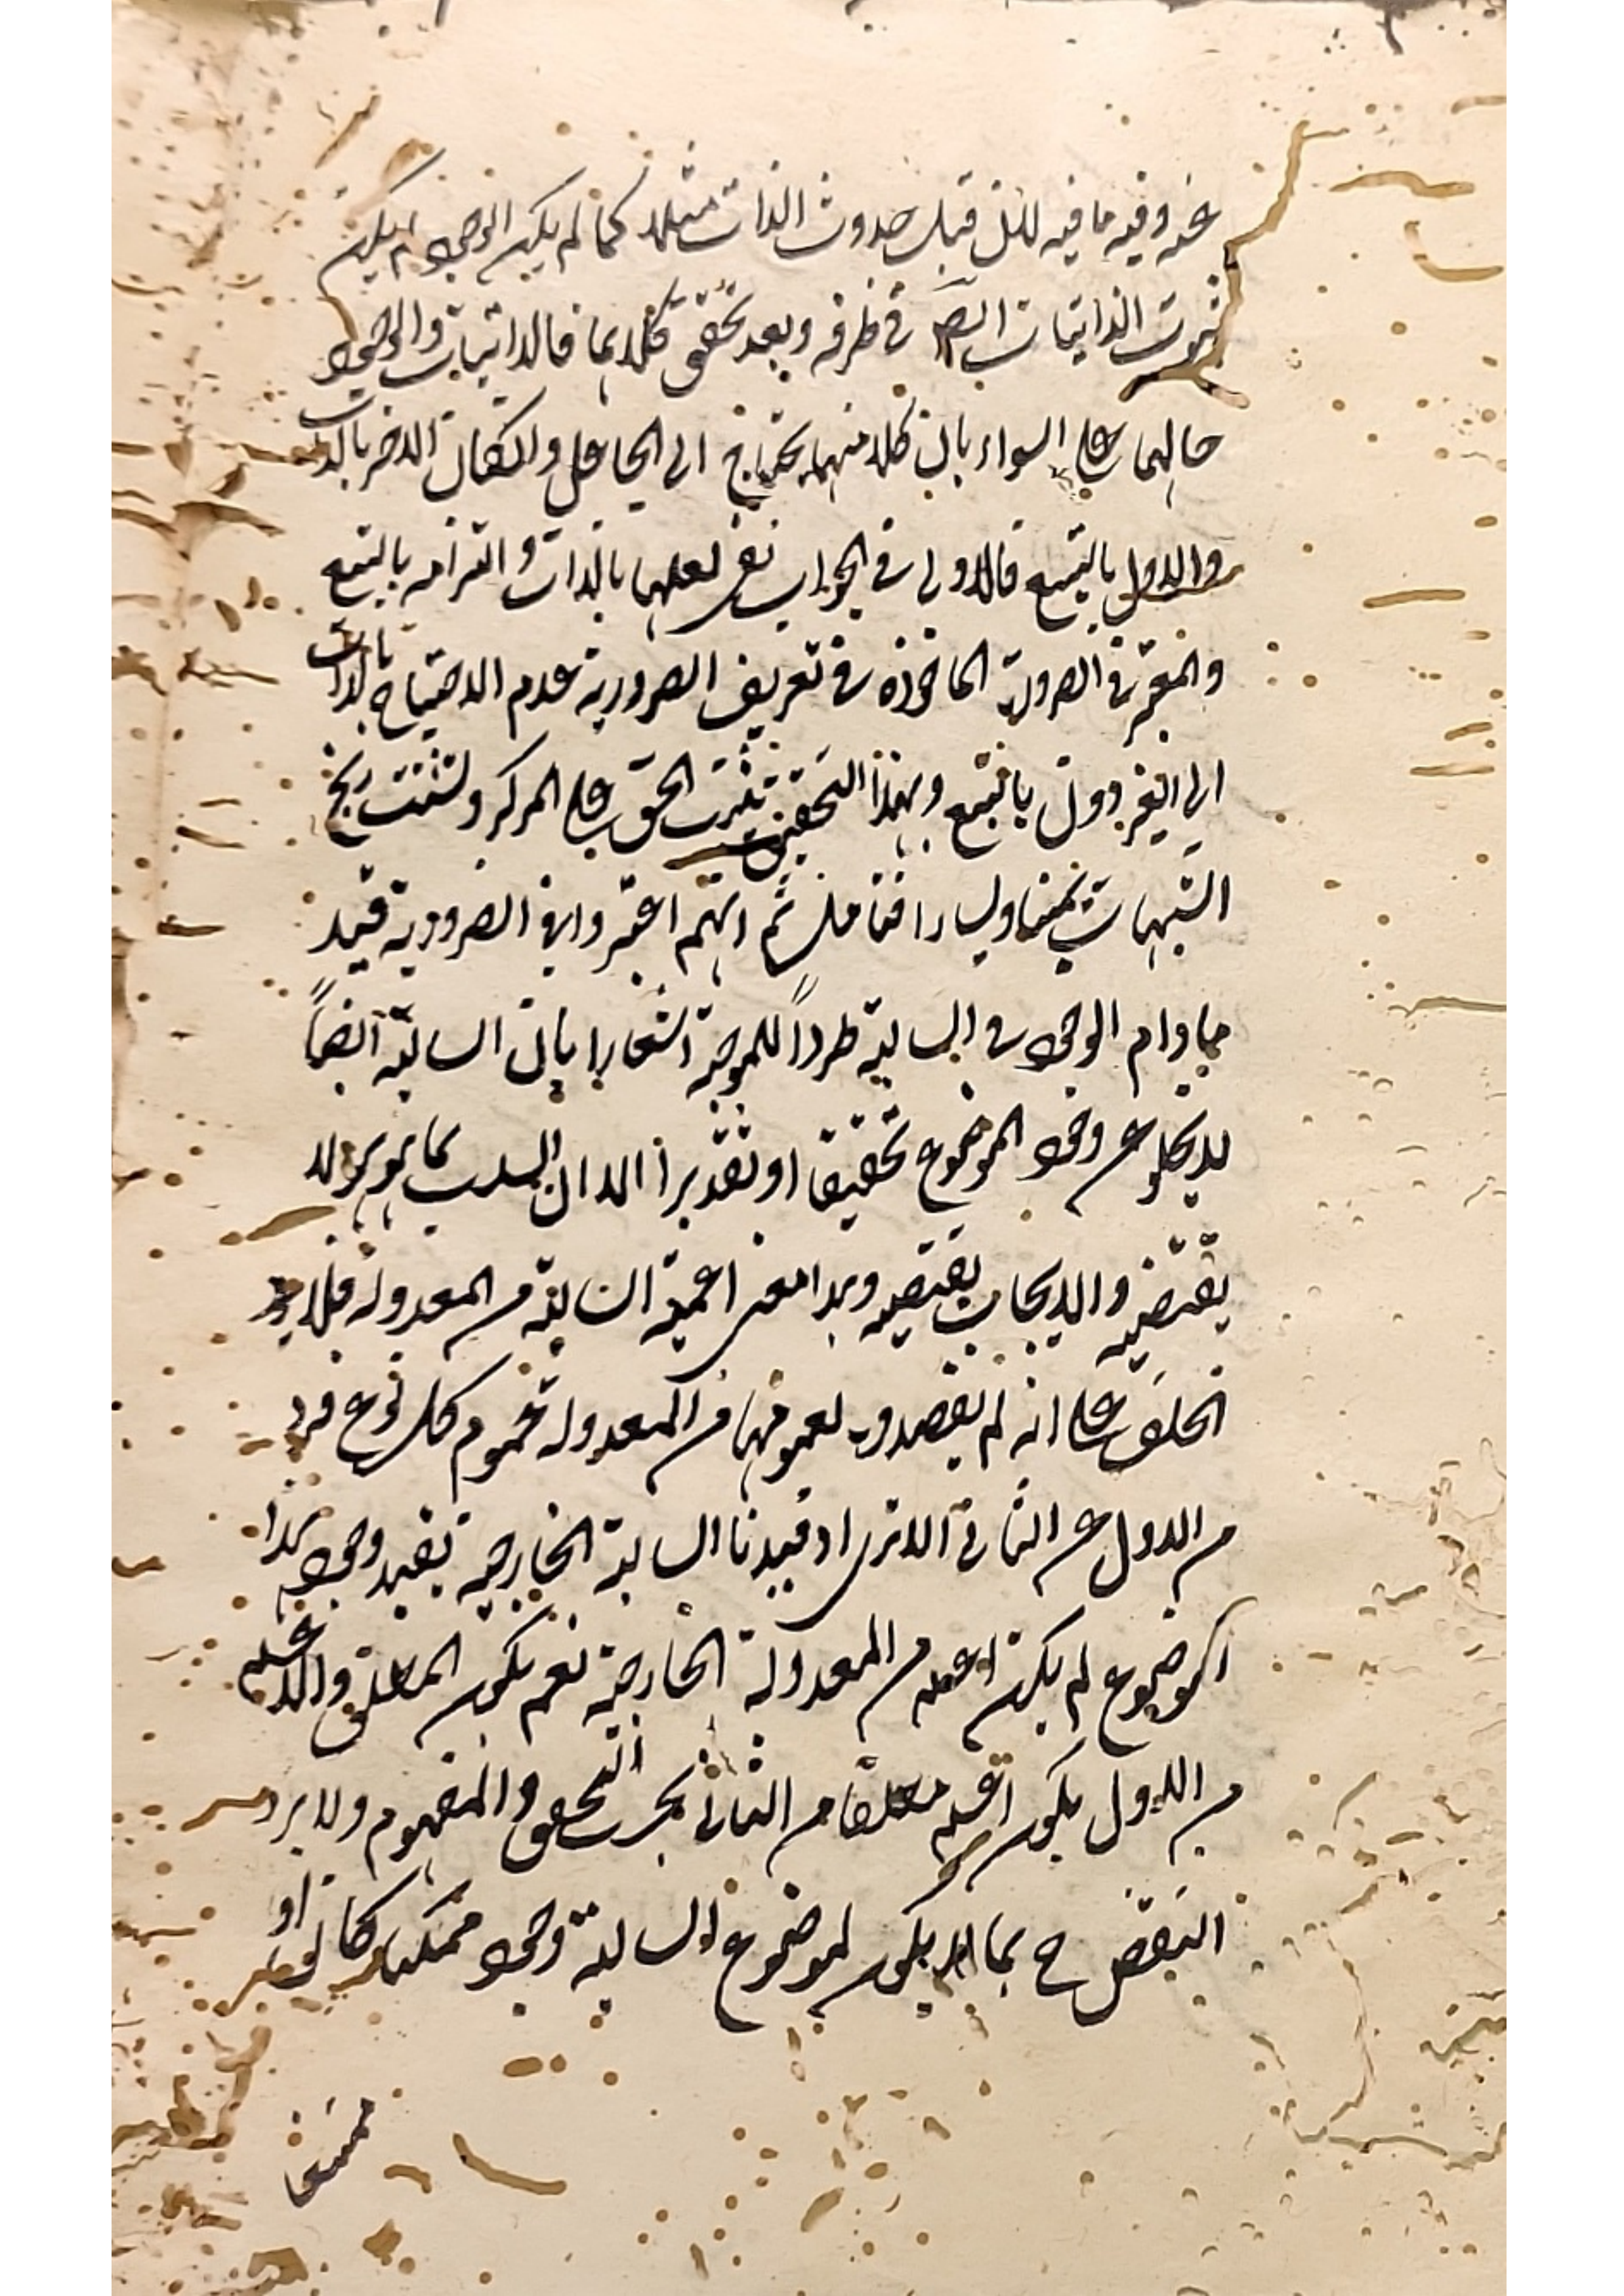 عنه وفيه ما فيه لان قبل حدوث الذات مثلا كما لم يكن الوجود لم يكن
ثبوت الذاتيات ايضا في ظرفه وبعد تحقق كلاهما فالذاتيات والوجود
حالهما على السواء بان كلا منهما يحتاج الى الجاعل وان كان الاخر بالذات
والاول بالتبع فالاولى في الجواب نفي لعلهما بالذات والتزامه بالتبع
والمعتبر في الضرورة الماخوذة في تعريف الضرورية عدم الاحتياج بالذات
الى الغير دون بالتبع وبهذا التحقيق يثبت الحق على المركز وتشتت
الشبهات يمينا ويسارا فتامل ثم انهم اعتبروا في الضرورية قيد
مادام الوجود في السالبة طردا للموجبة اشعارا بان السالبة ايضا
لا يخلو عن وجود الموضوع تحقيقا او تقديرا الا ان السلب بما هو هو لا
يقتضيه والايجاب يقتضيه وهذا معنى اعمية السالبة من المعدولة فلا يرد
الخلف على انه لم يقصدوا بعمومها من المعدولة عموم كل نوع فرد
من الاول عن الثاني الا ترى اذ قيدنا السالبة الخارجية بقيد وجود هذا
الموضوع لم يكن اعم من المعدولة الخارجية نعم يكون المطلق والاعم
من الاول يكون اعم مطلقا من الثاني بحسب التحقق والمفهوم ولا يرد
النقض ح بما لا يكون لموضوع السالبة وجود ممكنا كان او
ممتنعا